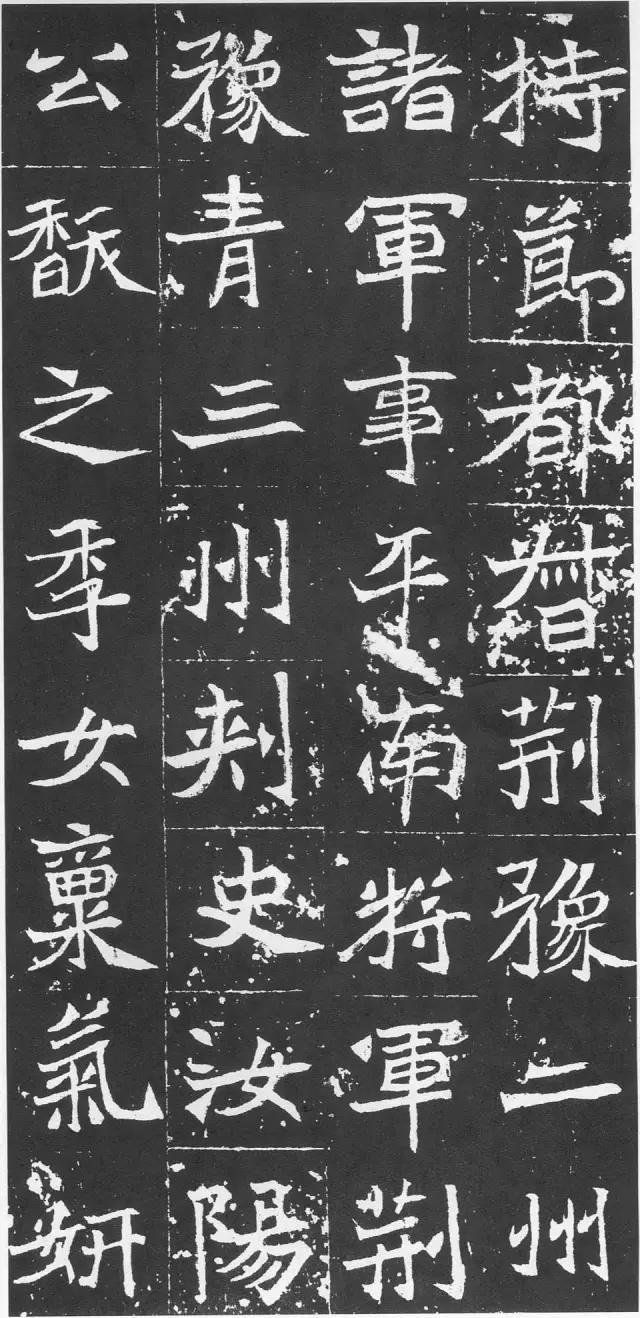 持節都督荊豫二州
諸軍事平南將軍荊
豫青三州刺史汝陽
公馛之季女稟氣妍